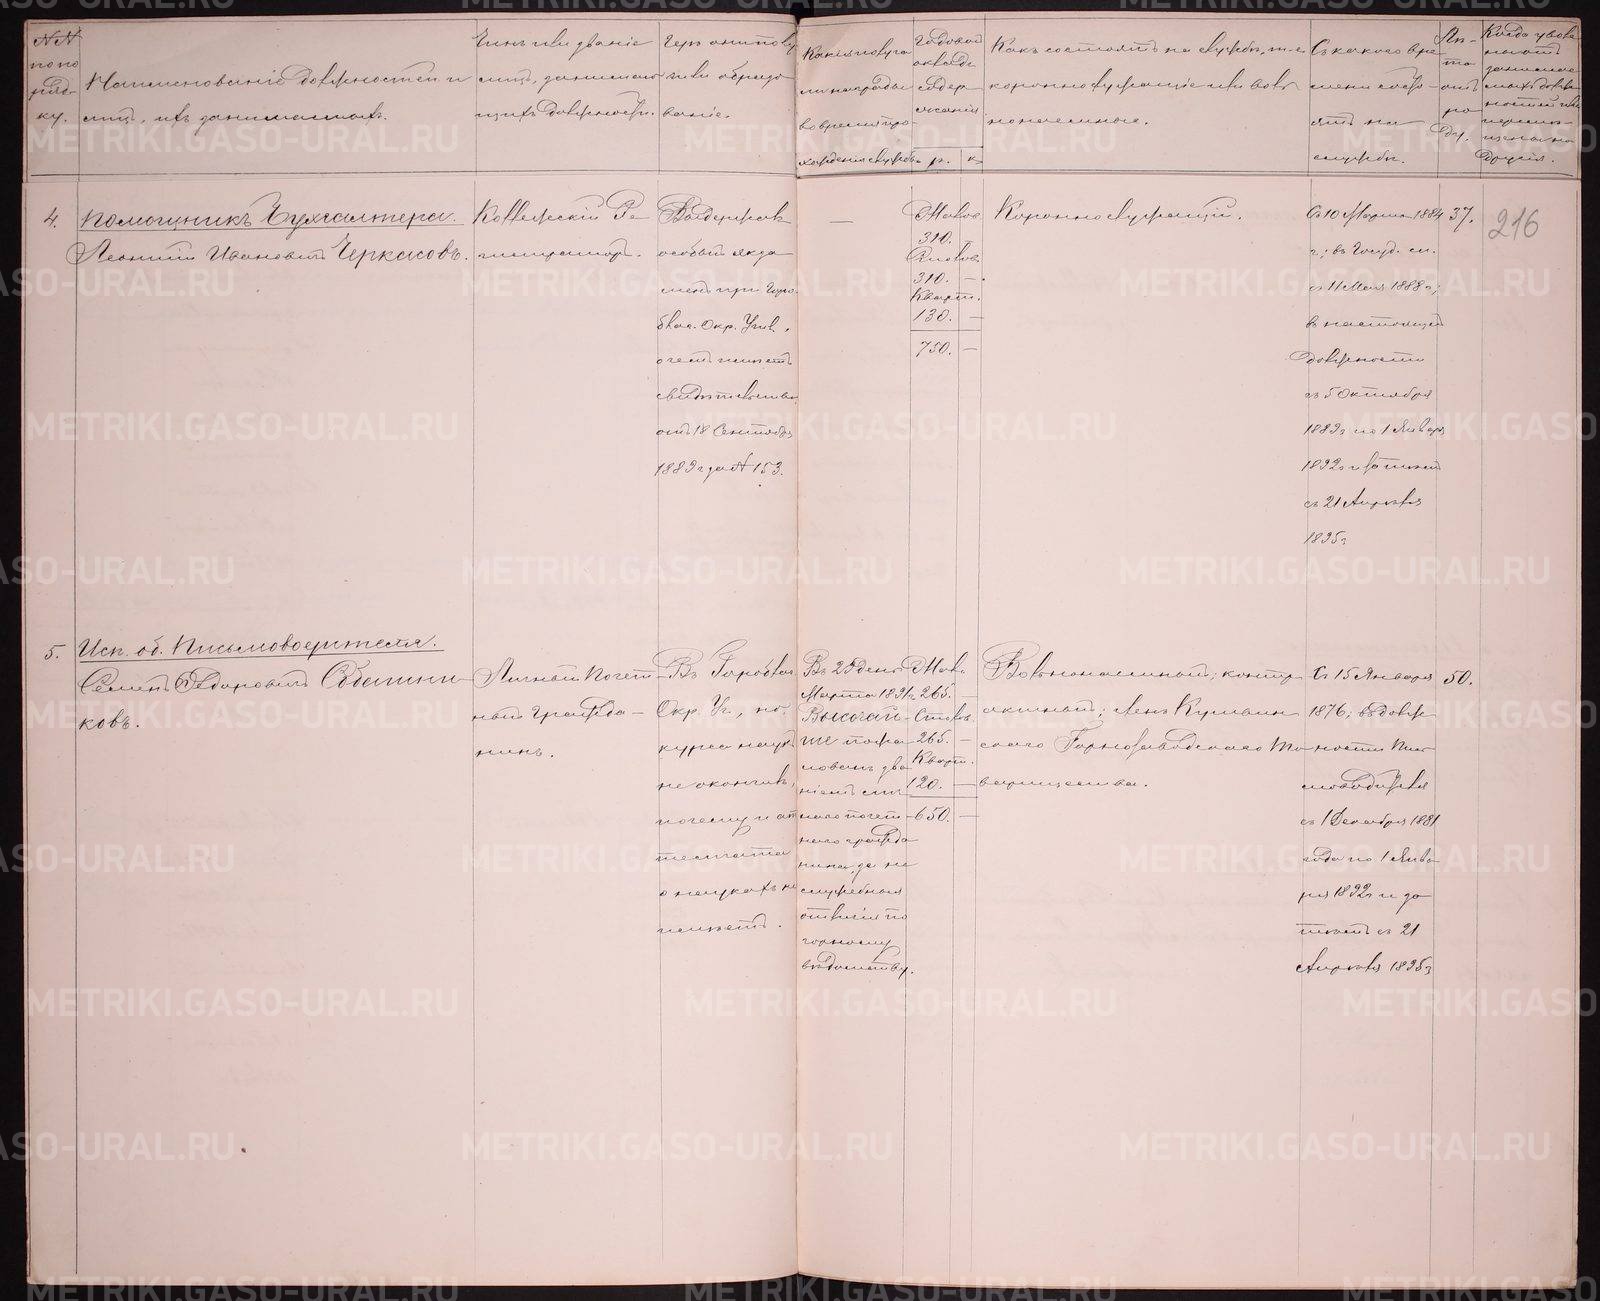 №№ по по ряд- ку.
Наименованіе должностей и
лицъ, ихъ занимающихъ.
Чинъ или званіе
лицъ, занимаю-
щихъ должности.
Гдѣ они полу
чили образо
ваніе.
Какія получа
ли награды
во время про-
хожденія службы
Годовой
окладъ
содер
жанія
р. к.
Какъ состоятъ на службѣ, т. е.
короннослужащіе или воль
нонаемные.
Съ какого вре
мени состо-
ятъ на
службѣ.
Лѣ-
та
отъ
ро
ду.
Когда уволе
ны отъ
занимае
мыхъ долж
ностей или
перемѣ-
щены на
другія.
216
4.
Помощникъ Бухгалтера.
Леонтій Ивановичъ Черкасовъ.
Коллежскій Ре
гистраторъ.
Выдержалъ
особый экза
менъ при Горо
благ. Окр. Учил.,
о чемъ имѣетъ
свидѣтельство
отъ 18 Сентября
1889 г за № 153.
—
Жалов.
310.
Столов.
310. —
Кварт.
130. —
750. —
Короннослужащій.
Съ 10 Марта 1884
г.; въ Госуд. сл.
съ 11 Мая 1888 г;
въ настоящей
должности
съ 5 Октября
1889 г по 1 Января
1892 г и затѣмъ
съ 21 Апрѣля
1895 г
37.
5.
Исп. об. Письмоводителя.
Семенъ Ѳедоровичъ Собянни
ковъ.
Личный Почет
ный Гражда-
нинъ.
Въ Гороблаг
Окр. Уч., но
курса наукъ
не окончилъ,
почему и ат
тестата
о наукахъ не
имѣетъ.
Въ 25 день
Марта 1891 г
Высочай-
ше пожа
лованъ зва
ніемъ лич
наго почет
наго гражда
нина, за не
служебныя
отличія по
горному
вѣдомству.
Жалов.
265. —
Столов.
265. —
Кварт.
120. —
650. —
Вольнонаемный; контр
актный; членъ Кушвин
скаго Горнозаводскаго То
варищества.
Съ 15 Января
1876; въ долж
ности Пись
моводителя
съ 1 Декабря 1881
года по 1 Янва
ря 1892 г и за
тѣмъ съ 21
Апрѣля 1895 г
50.
METRIKI.GASO-URAL.RU